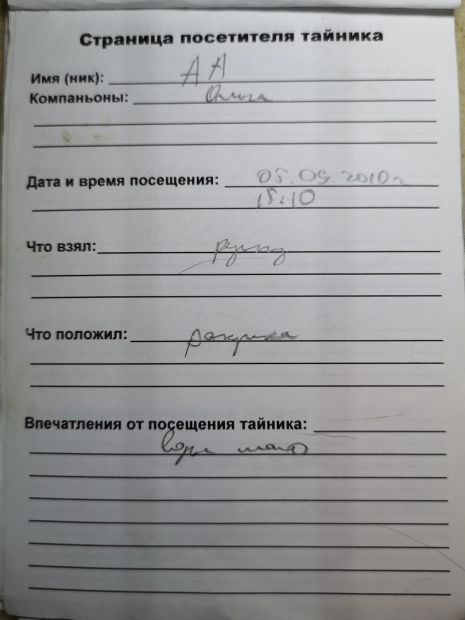 Страница посетителя тайника
Имя (ник): АА
Компаньоны: Ольга
Дата и время посещения: 05.09.2010г
18:10
Что взял:
Что положил: ракушка
Впечатления от посещения тайника: